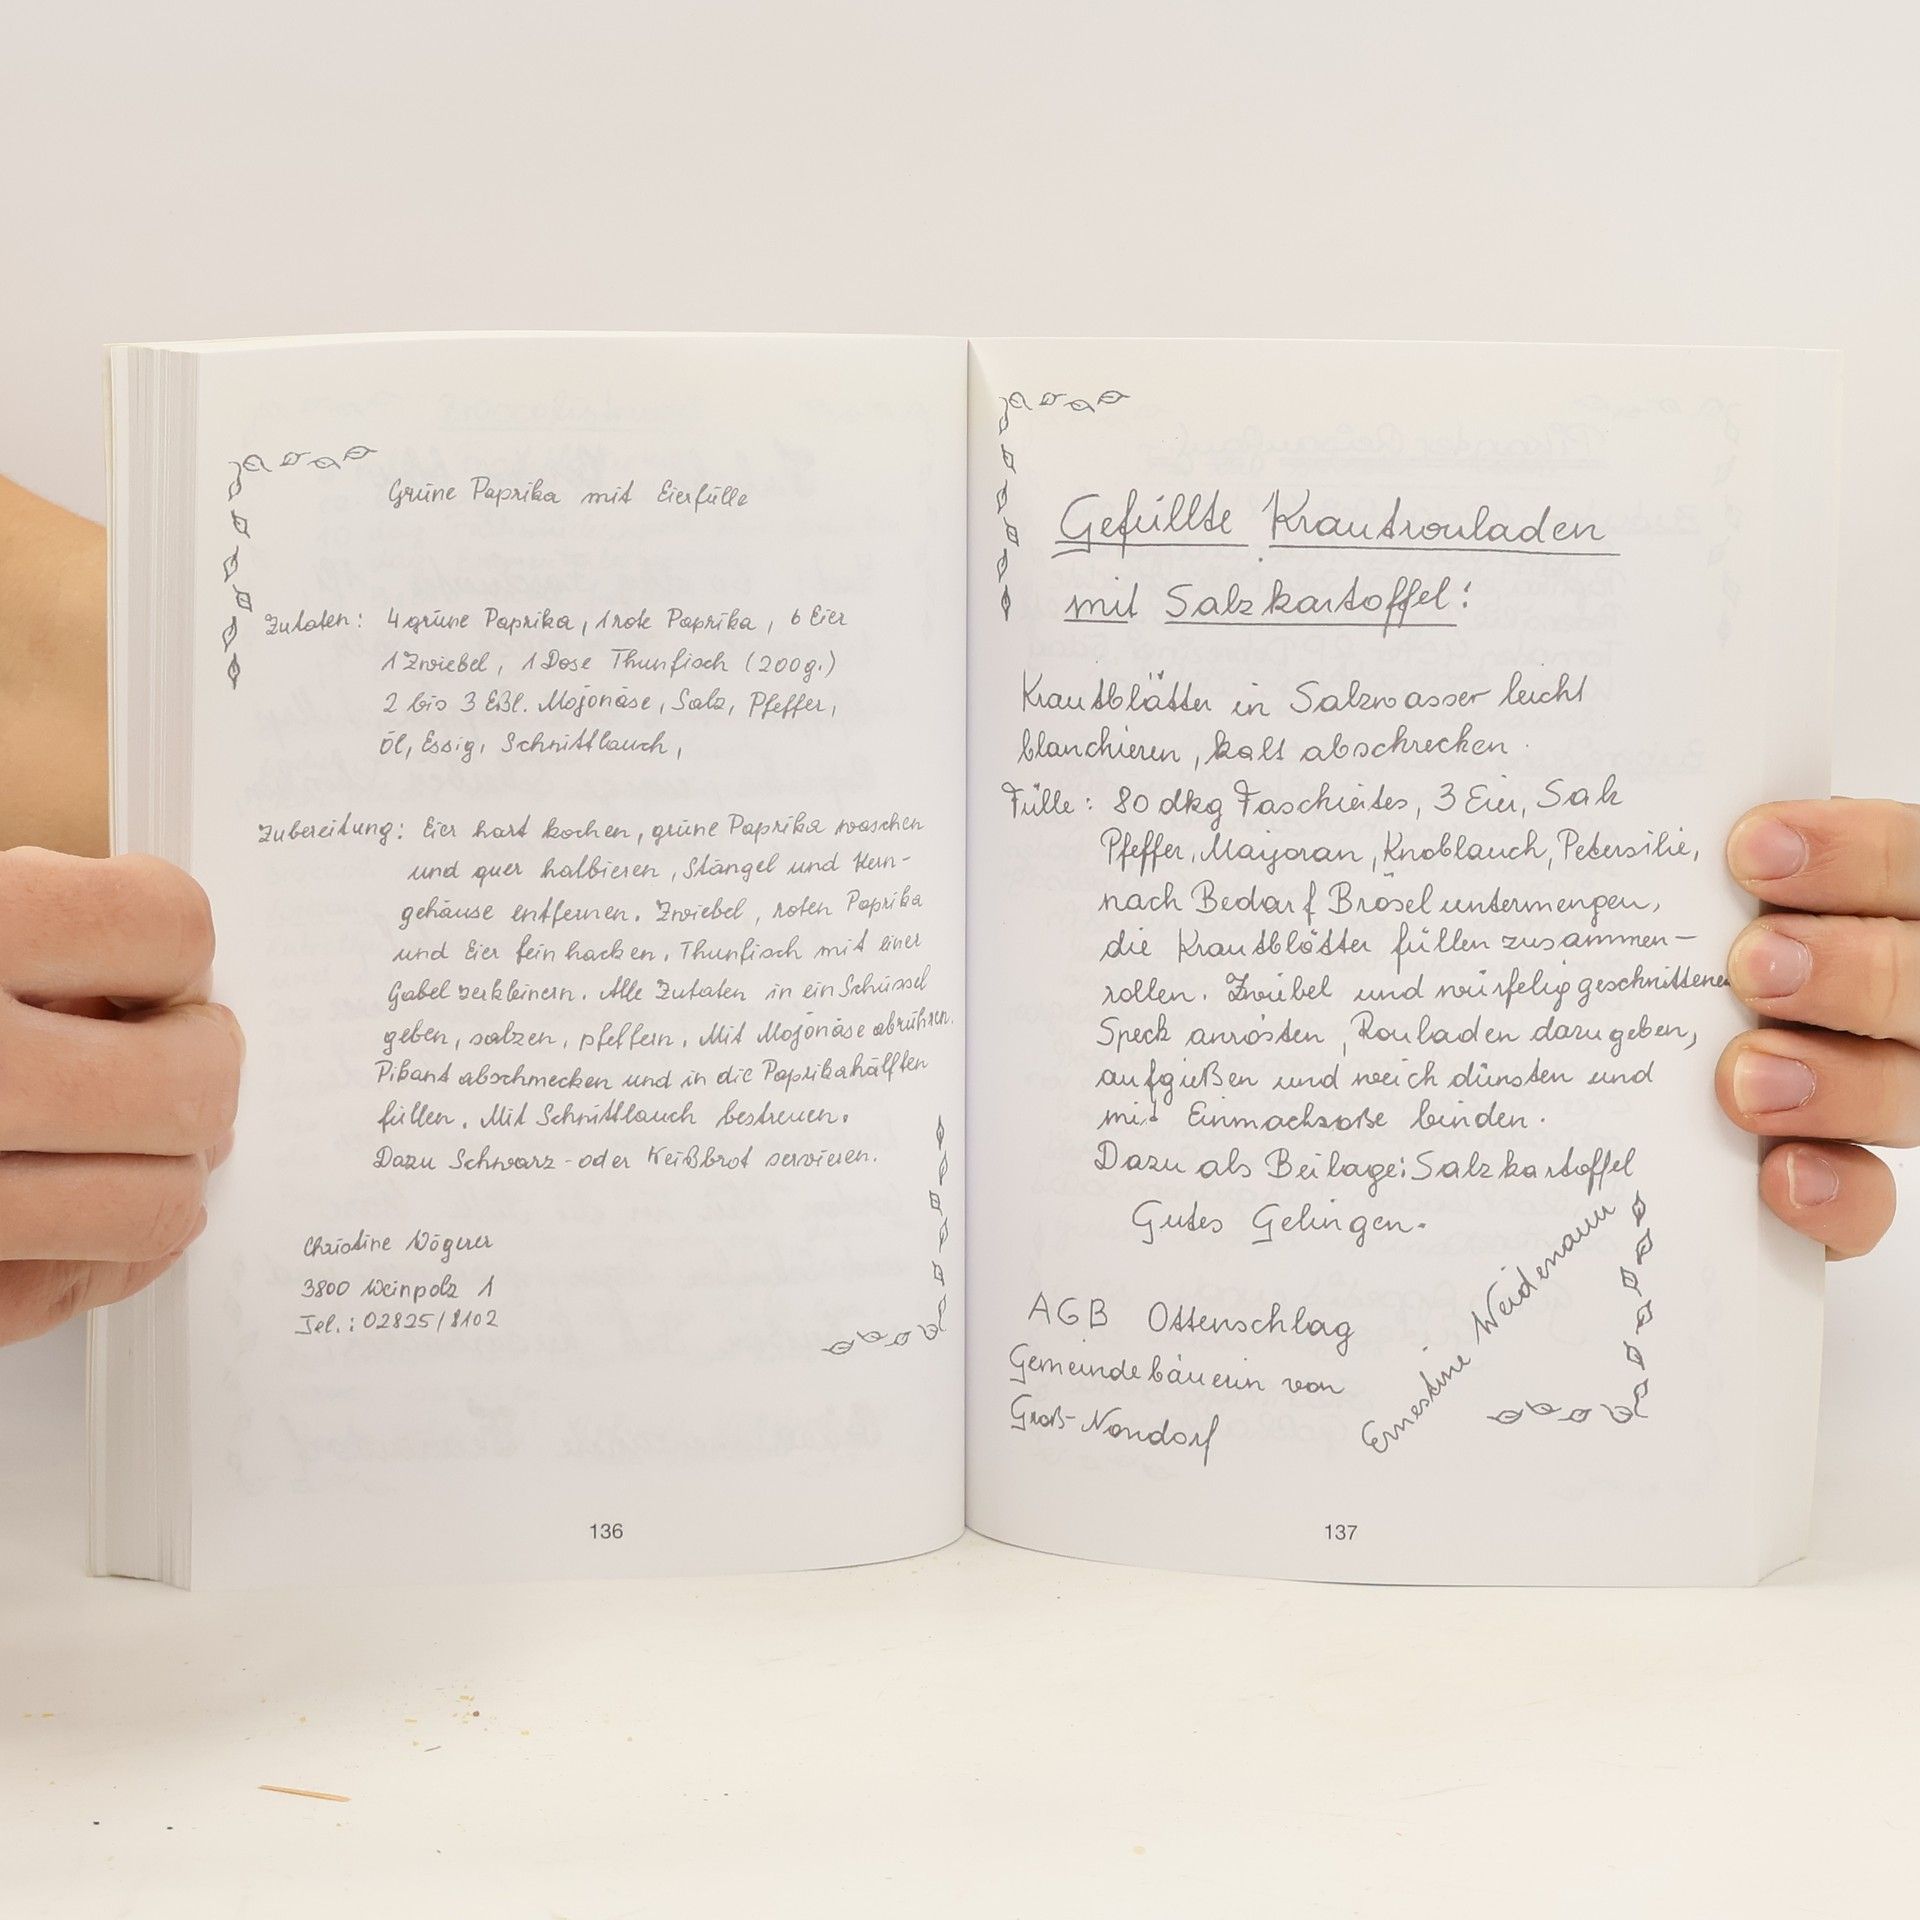 Grüne Paprika mit Eierfülle
Zutaten: 4 grüne Paprika, 1 rote Paprika, 6 Eier
1 Zwiebel, 1 Dose Thunfisch (200g.)
2 bis 3 Eßl. Mojonäse, Salz, Pfeffer,
Öl, Essig, Schnittlauch,
Zubereitung: Eier hart kochen, grüne Paprika waschen
und quer halbieren, Stängel und Kern-
gehäuse entfernen. Zwiebel, roten Paprika
und Eier fein hacken. Thunfisch mit einer
Gabel zerkleinern. Alle Zutaten in ein Schüssel
geben, salzen, pfeffern. Mit Mojonäse abrühren.
Pikant abschmecken und in die Paprikahälften
füllen. Mit Schnittlauch bestreuen.
Dazu Schwarz-oder Weißbrot servieren.
Christine Wögerer
3800 Weinpolz 1
Tel.: 02825/8102
136
Gefüllte Krautrouladen
mit Salzkartoffel!
Krautblätter in Salzwasser leicht
blanchieren, kalt abschrecken.
Fülle: 80 dkg Faschiertes, 3 Eier, Salz
Pfeffer, Majoran, Knoblauch, Petersilie,
nach Bedarf Brösel untermengen,
die Krautblätter füllen zusammen-
rollen. Zwiebel und würfelig geschnittenen
Speck anrösten, Rouladen dazugeben,
aufgießen und weich dünsten und
mit Einmachsoße binden.
Dazu als Beilage: Salzkartoffel
Gutes Gelingen.
AGB Ottenschlag
Gemeindebäuerin von
Groß-Nondorf
Ernestine Weidenauer
137